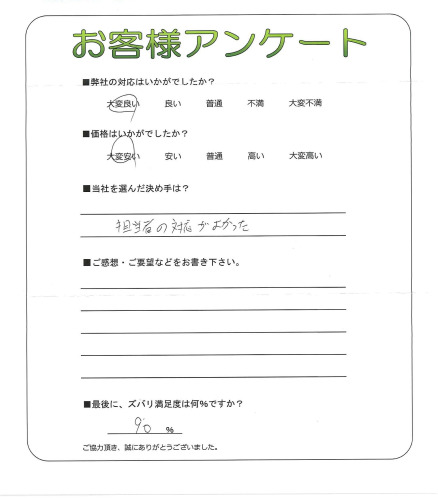 お客様アンケート
■弊社の対応はいかがでしたか？
大変良い 良い 普通 不満 大変不満
■価格はいかがでしたか？
大変安い 安い 普通 高い 大変高い
■当社を選んだ決め手は？
担当者の対応がよかった
■ご感想・ご要望などをお書き下さい。
■最後に、ズバリ満足度は何％ですか？
90 ％
ご協力頂き、誠にありがとうございました。